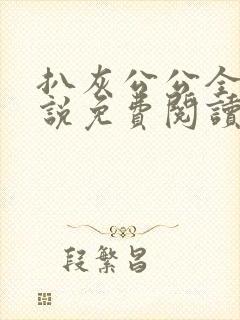 扒灰公公全
說免費閱讀
段繁昌